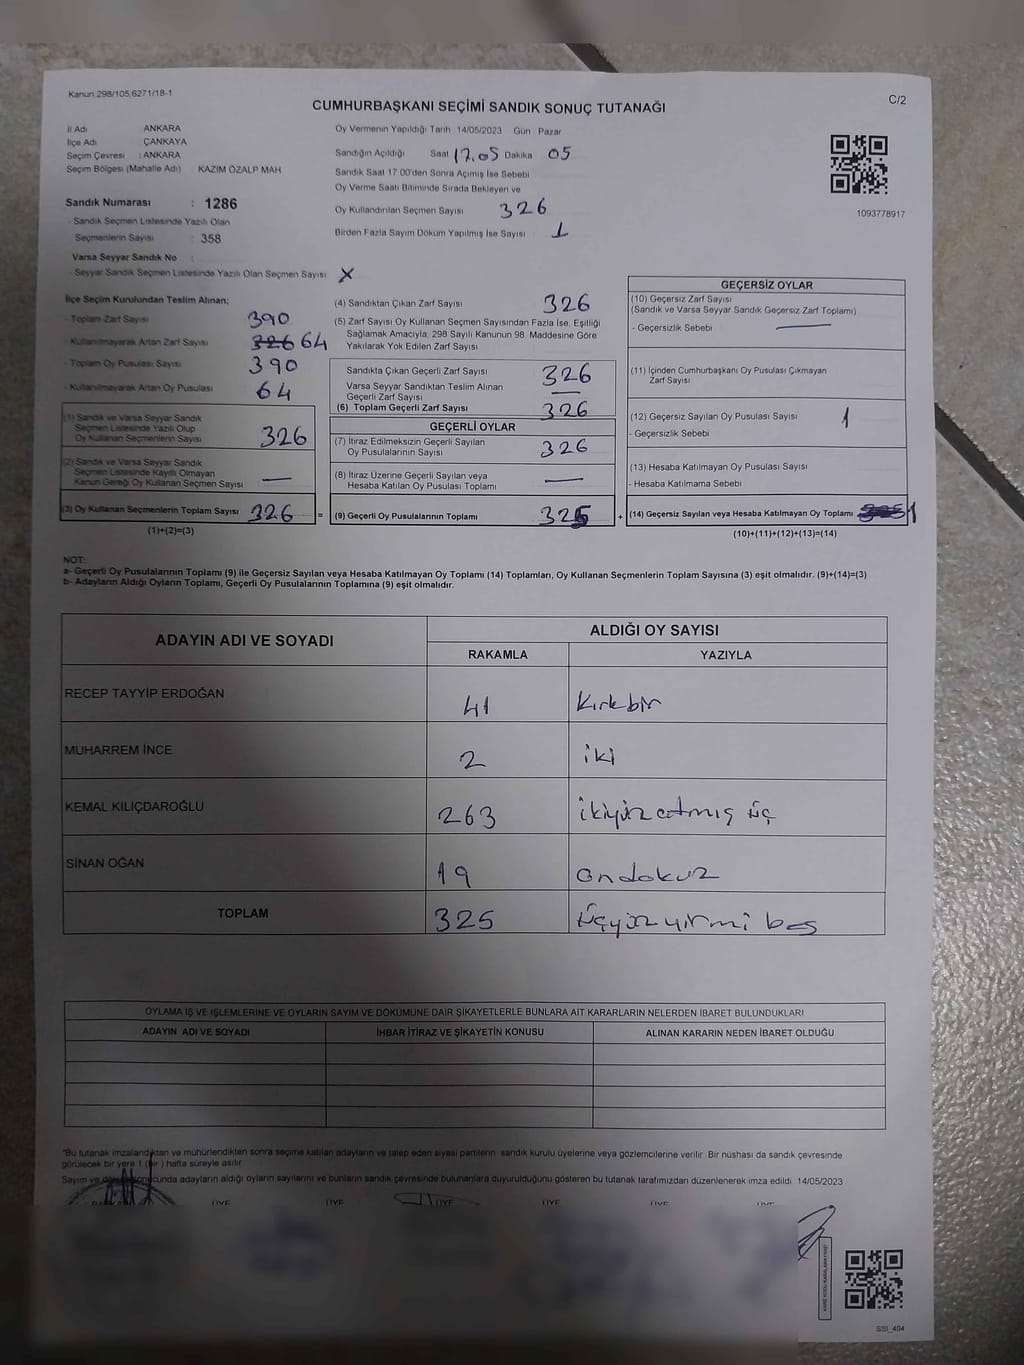 Kanun:298/105,6271/18-1
C/2
CUMHURBAŞKANI SEÇİMİ SANDIK SONUÇ TUTANAĞI
İl Adı ANKARA
İlçe Adı ÇANKAYA
Seçim Çevresi : ANKARA
Seçim Bölgesi (Mahalle Adı) KAZIM ÖZALP MAH
Sandık Numarası : 1286
- Sandık Seçmen Listesinde Yazılı Olan
Seçmenlerin Sayısı : 358
Varsa Seyyar Sandık No :
- Seyyar Sandık Seçmen Listesinde Yazılı Olan Seçmen Sayısı X
Oy Vermenin Yapıldığı Tarih 14/05/2023 Gün Pazar
Sandığın Açıldığı Saat 17.05 Dakika 05
Sandık Saat 17:00'den Sonra Açımış İse Sebebi
Oy Verme Saati Bitiminde Sırada Bekleyen ve
Oy Kullandırılan Seçmen Sayısı 326
Birden Fazla Sayım Döküm Yapılmış İse Sayısı 1
1093778917
İlçe Seçim Kurulundan Teslim Alınan;
- Toplam Zarf Sayısı 390
- Kullanılmayarak Artan Zarf Sayısı 326 64
- Toplam Oy Pusulası Sayısı 390
- Kullanılmayarak Artan Oy Pusulası 64
(1) Sandık ve Varsa Seyyar Sandık
Seçmen Listesinde Yazılı Olup
Oy Kullanan Seçmenlerin Sayısı 326
(2) Sandık ve Varsa Seyyar Sandık
Seçmen Listesinde Kayıtlı Olmayan
Kanun Gereği Oy Kullanan Seçmen Sayısı —
(3) Oy Kullanan Seçmenlerin Toplam Sayısı 326 =
(1)+(2)=(3)
(4) Sandıktan Çıkan Zarf Sayısı 326
(5) Zarf Sayısı Oy Kullanan Seçmen Sayısından Fazla İse, Eşitliği
Sağlamak Amacıyla; 298 Sayılı Kanunun 98. Maddesine Göre
Yakılarak Yok Edilen Zarf Sayısı
Sandıkta Çıkan Geçerli Zarf Sayısı 326
Varsa Seyyar Sandıktan Teslim Alınan
Geçerli Zarf Sayısı —
(6) Toplam Geçerli Zarf Sayısı 326
GEÇERLİ OYLAR
(7) İtiraz Edilmeksizin Geçerli Sayılan
Oy Pusulalarının Sayısı 326
(8) İtiraz Üzerine Geçerli Sayılan veya
Hesaba Katılan Oy Pusulası Toplamı —
(9) Geçerli Oy Pusulalarının Toplamı 325 +
GEÇERSİZ OYLAR
(10) Geçersiz Zarf Sayısı
(Sandık ve Varsa Seyyar Sandık Geçersiz Zarf Toplamı)
- Geçersizlik Sebebi —
(11) İçinden Cumhurbaşkanı Oy Pusulası Çıkmayan
Zarf Sayısı
(12) Geçersiz Sayılan Oy Pusulası Sayısı 1
- Geçersizlik Sebebi
(13) Hesaba Katılmayan Oy Pusulası Sayısı
- Hesaba Katılmama Sebebi
(14) Geçersiz Sayılan veya Hesaba Katılmayan Oy Toplamı 1
(10)+(11)+(12)+(13)=(14)
NOT:
a- Geçerli Oy Pusulalarının Toplamı (9) ile Geçersiz Sayılan veya Hesaba Katılmayan Oy Toplamı (14) Toplamları, Oy Kullanan Seçmenlerin Toplam Sayısına (3) eşit olmalıdır. (9)+(14)=(3)
b- Adayların Aldığı Oyların Toplamı, Geçerli Oy Pusulalarının Toplamına (9) eşit olmalıdır.
ADAYIN ADI VE SOYADI
ALDIĞI OY SAYISI
RAKAMLA YAZIYLA
RECEP TAYYİP ERDOĞAN 41 Kırkbir
MUHARREM İNCE 2 iki
KEMAL KILIÇDAROĞLU 263 ikiyüzatmış üç
SİNAN OĞAN 19 ondokuz
TOPLAM 325 üçyüzyirmi beş
OYLAMA İŞ VE İŞLEMLERİNE VE OYLARIN SAYIM VE DÖKÜMÜNE DAİR ŞİKAYETLERLE BUNLARA AİT KARARLARIN NELERDEN İBARET BULUNDUKLARI
ADAYIN ADI VE SOYADI İHBAR İTİRAZ VE ŞİKAYETİN KONUSU ALINAN KARARIN NEDEN İBARET OLDUĞU
*Bu tutanak imzalandıktan ve mühürlendikten sonra seçime katılan adayların ve talep eden siyasi partilerin sandık kurulu üyelerine veya gözlemcilerine verilir. Bir nüshası da sandık çevresinde
görülecek bir yere 1 (bir) hafta süreyle asılır.
Sayım ve döküm sonucunda adayların aldığı oyların sayılarını ve bunların sandık çevresinde bulunanlara duyurulduğunu gösteren bu tutanak tarafımızdan düzenlenerek imza edildi. 14/05/2023
ÜYE ÜYE ÜYE ÜYE ÜYE ÜYE
SSI_404